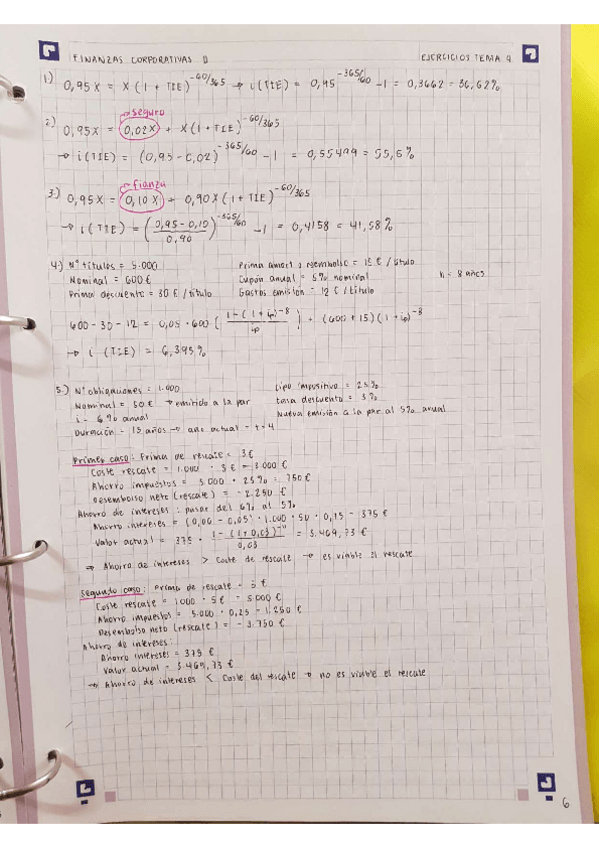 FINANZAS CORPORATIVAS II EJERCICIOS TEMA 4
1) 0,95X = X(1 + TIE)^-60/365 → i(TIE) = 0,95^-365/60 - 1 = 0,3662 = 36,62%
→ seguro
2) 0,95X = 0,02X + X(1 + TIE)^-60/365
→ i(TIE) = (0,95 - 0,02)^-365/60 - 1 = 0,55499 = 55,5%
→ fianza
3) 0,95X = 0,10X + 0,90X(1 + TIE)^-60/365
→ i(TIE) = (0,95 - 0,10 / 0,90)^-365/60 - 1 = 0,4158 = 41,58%
4) Nº títulos = 5.000 Prima amort o reembolso = 15 € / título
Nominal = 600 € Cupón anual = 5% nominal n = 8 años
Prima descuento = 30 € / título Gastos emisión = 12 € / título
600 - 30 - 12 = 0,05 · 600 [1 - (1 + ip)^-8 / ip] + (600 + 15)(1 + ip)^-8
→ i (TIE) = 6,395%
5) Nº obligaciones = 1.000 tipo impositivo = 25%
Nominal = 50 € → emitido a la par tasa descuento = 3%
i = 6% anual Nueva emisión a la par al 5% anual
Duración = 15 años → año actual = t = 4
Primer caso: Prima de rescate = 3€
Coste rescate = 1.000 · 3 € = 3.000 €
Ahorro impuestos = 3.000 · 25% = 750 €
Desembolso neto (rescate) = - 2.250 €
Ahorro de intereses: pasar del 6% al 5%
Ahorro intereses = (0,06 - 0,05) · 1.000 · 50 · 0,75 = 375 €
Valor actual = 375 · 1 - (1 + 0,03)^-11 / 0,03 = 3.469,73 €
→ Ahorro de intereses > Coste de rescate → es viable el rescate
Segundo caso: Prima de rescate = 5 €
Coste rescate = 1000 · 5€ = 5.000 €
Ahorro impuestos = 5.000 · 0,25 = 1.250 €
Desembolso neto (rescate) = - 3.750 €
Ahorro de intereses:
Ahorro intereses = 375 €
Valor actual = 3.469,73 €
→ Ahorro de intereses < Coste del rescate → no es viable el rescate
6